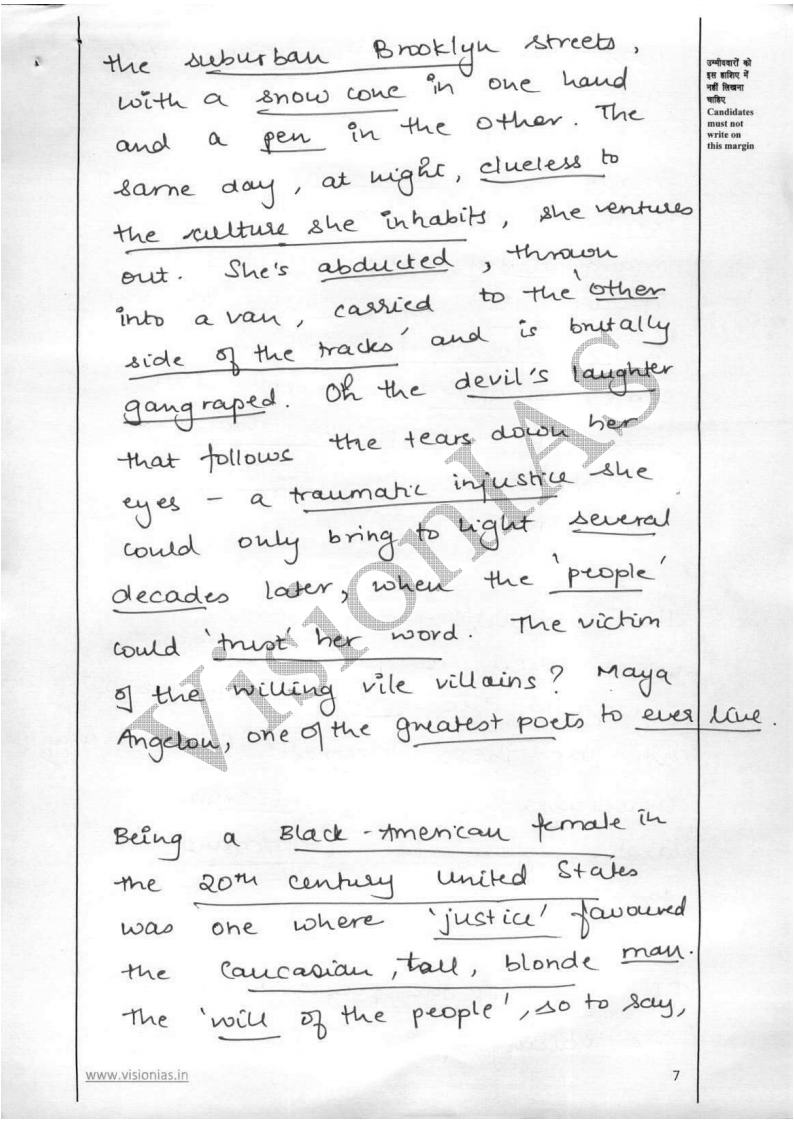 the suburban Brooklyn streets,
with a snow cone in one hand
and a pen in the other. The
same day, at night, clueless to
the culture she inhabits, she ventures
out. She's abducted, thrown
into a van, carried to the 'other
side of the tracks' and is brutally
gangraped. Oh the devil's laughter
that follows the tears down her
eyes - a traumatic injustice she
could only bring to light several
decades later, when the 'people'
could 'trust' her word. The victim
of the willing vile villains? Maya
Angelou, one of the greatest poets to ever live.
Being a Black-American female in
the 20th century United States
was one where 'justice' favoured
the Caucasian, tall, blonde man.
The 'will of the people', so to say,
उम्मीदवारों को
इस हाशिए में
नहीं लिखना
चाहिए
Candidates
must not
write on
this margin
VisionIAS
www.visionias.in
7